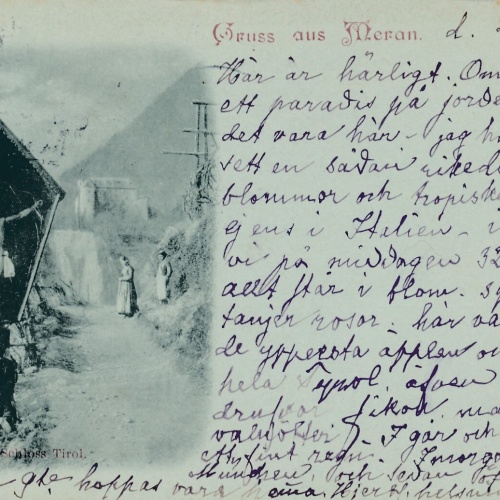 Gruss aus Meran.
d.
Här är härligt. Om
ett paradis på jorde
det vara här – jag h
sett en sådan rikedo
blommor och tropisk
ej ens i Italien –
vi på middagen 32
allt står i blom.
tanjer rosor – här vä
de yppersta äpplen oc
hela Tyrol, äfven
drufvor fikon, ma
valnötter. I går och
ett fint regn. I morgo
München, och sedan
hoppas vara hema. Hjertl. helsn
Schloss Tirol.